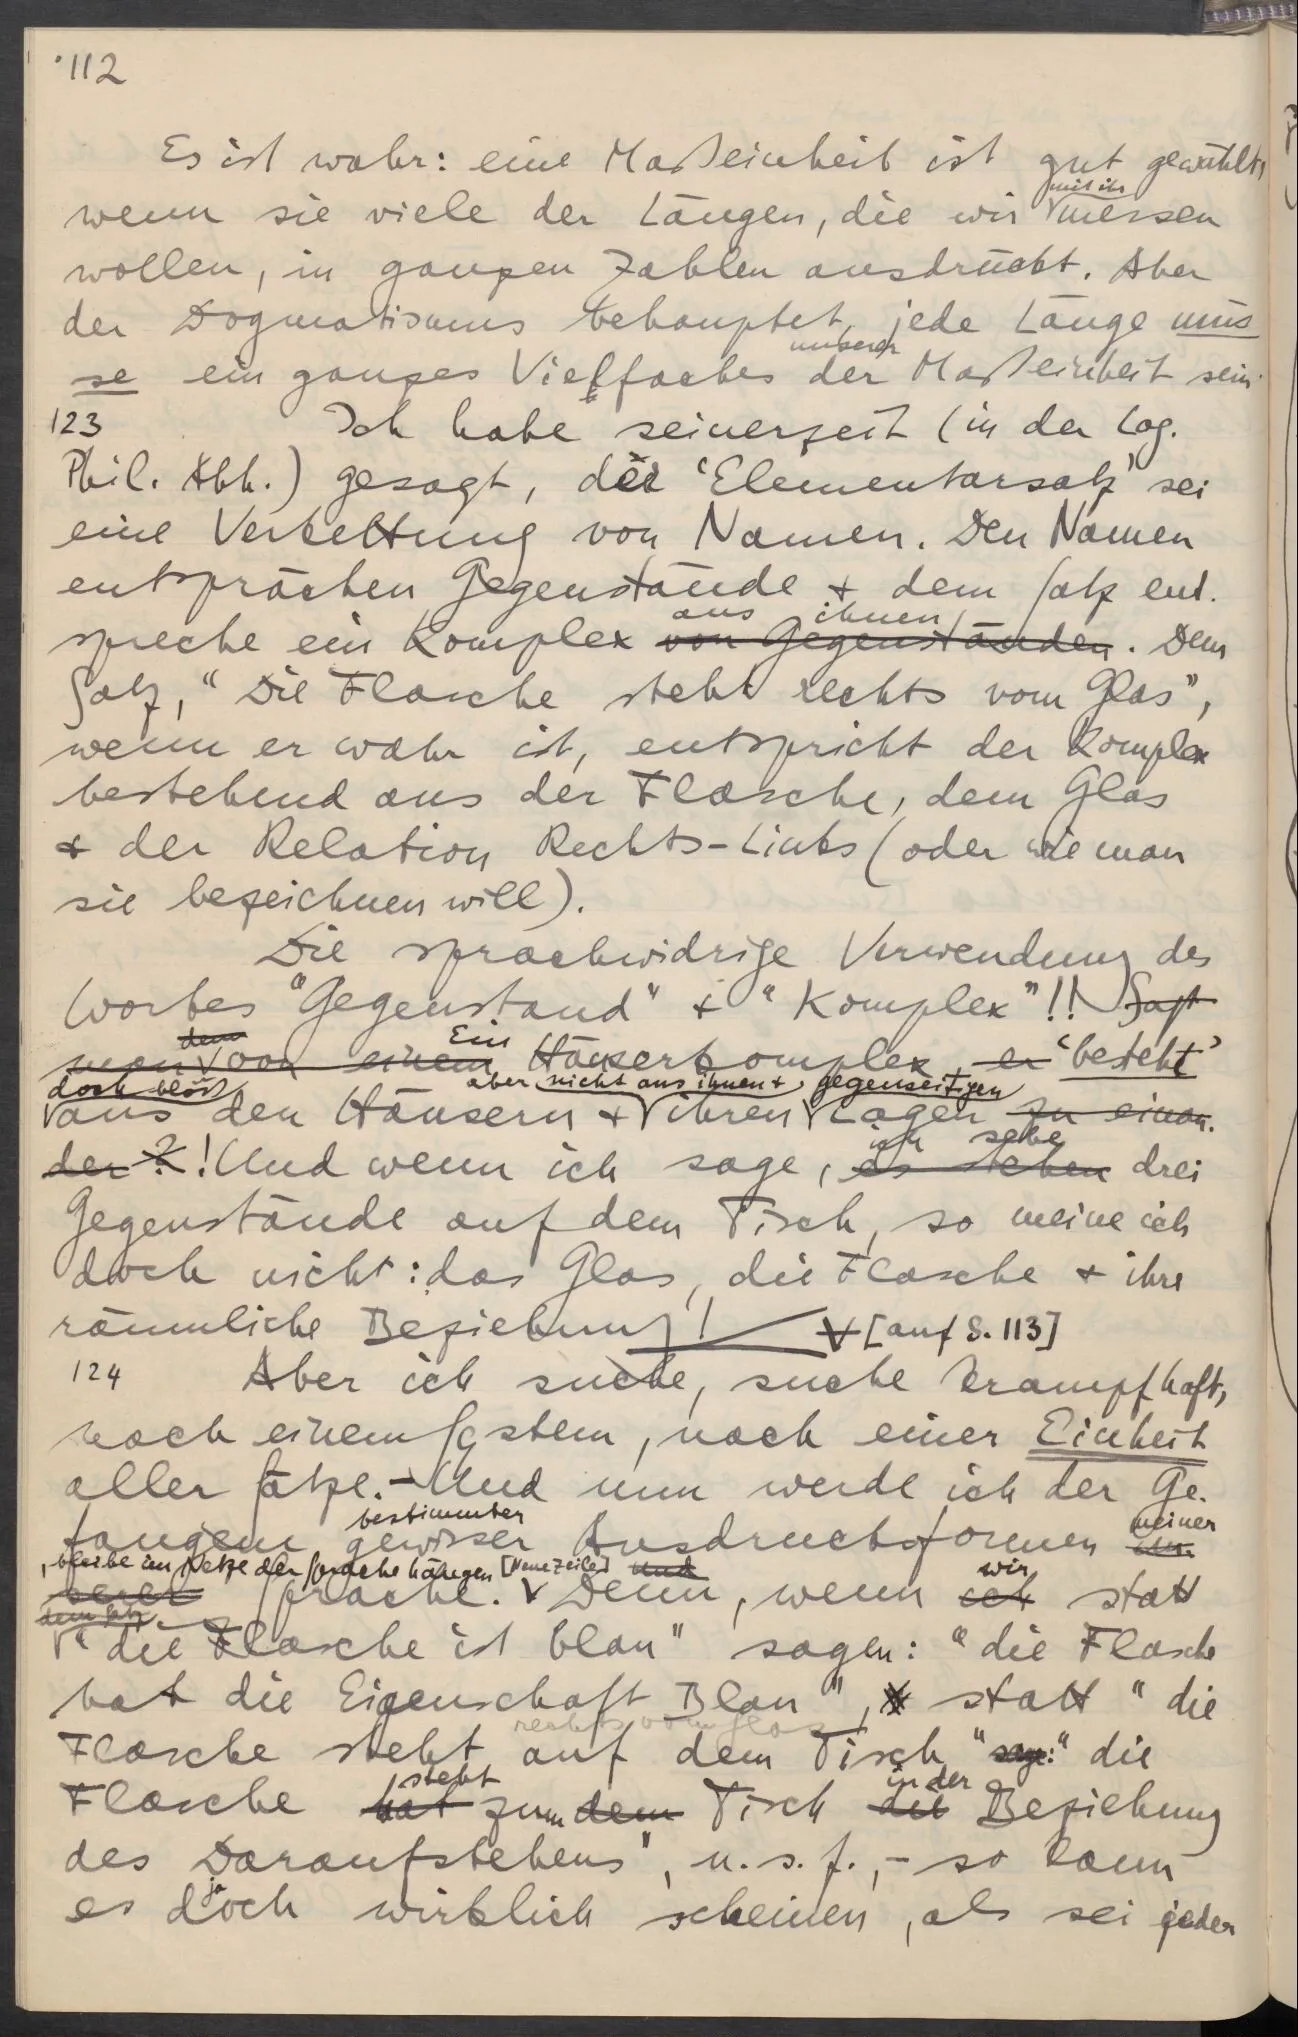 112
Es ist wahr: eine Maßeinheit ist gut gewählt,
mit ihr
wenn sie viele der Längen, die wir messen
wollen, in ganzen Zahlen ausdrückt. Aber
der Dogmatismus behauptet, jede Länge müs
unserer
se ein ganzes Vielfaches der Maßeinheit sein.
123 Ich habe seinerzeit (in der Log.
Phil. Abh.) gesagt, der 'Elementarsatz' sei
eine Verkettung von Namen. Den Namen
entsprächen Gegenstände & dem Satz ent-
aus ihnen
spreche ein Komplex von Gegenständen. Dem
Satz, "Die Flasche steht rechts vom Glas",
wenn er wahr ist, entspricht der Komplex
bestehend aus der Flasche, dem Glas
& der Relation Rechts-Links (oder wie man
sie bezeichnen will).
Die sprachwidrige Verwendung des
Wortes "Gegenstand" & "Komplex"!! Sagt
dem Ein
man von einem Häuserkomplex, er 'besteht'
doch bloß aber nicht aus ihnen & gegenseitigen
aus den Häusern & ihren Lagen zu einan-
ich sehe
der?! Und wenn ich sage, es stehen drei
Gegenstände auf dem Tisch, so meine ich
doch nicht: das Glas, die Flasche & ihre
räumliche Beziehung! [auf S. 113]
124 Aber ich suche, suche krampfhaft,
nach einem System, nach einer Einheit
aller Sätze. – Und nun werde ich der Ge-
bestimmter meiner
fangene gewisser Ausdrucksformen un-
, bleibe im Netze der Sprache hängen [Neue Zeile] und wir
serer Sprache. Denn, wenn ich statt
dem Satz
"die Flasche ist blau" sagen: "die Flasche
hat die Eigenschaft Blau", statt "die
rechts vom Glas
Flasche steht auf dem Tisch" sage: "die
steht in der
Flasche hat zum dem Tisch die Beziehung
des Daraufstehens", u.s.f., – so kann
ja
es doch wirklich scheinen, als sei jeder